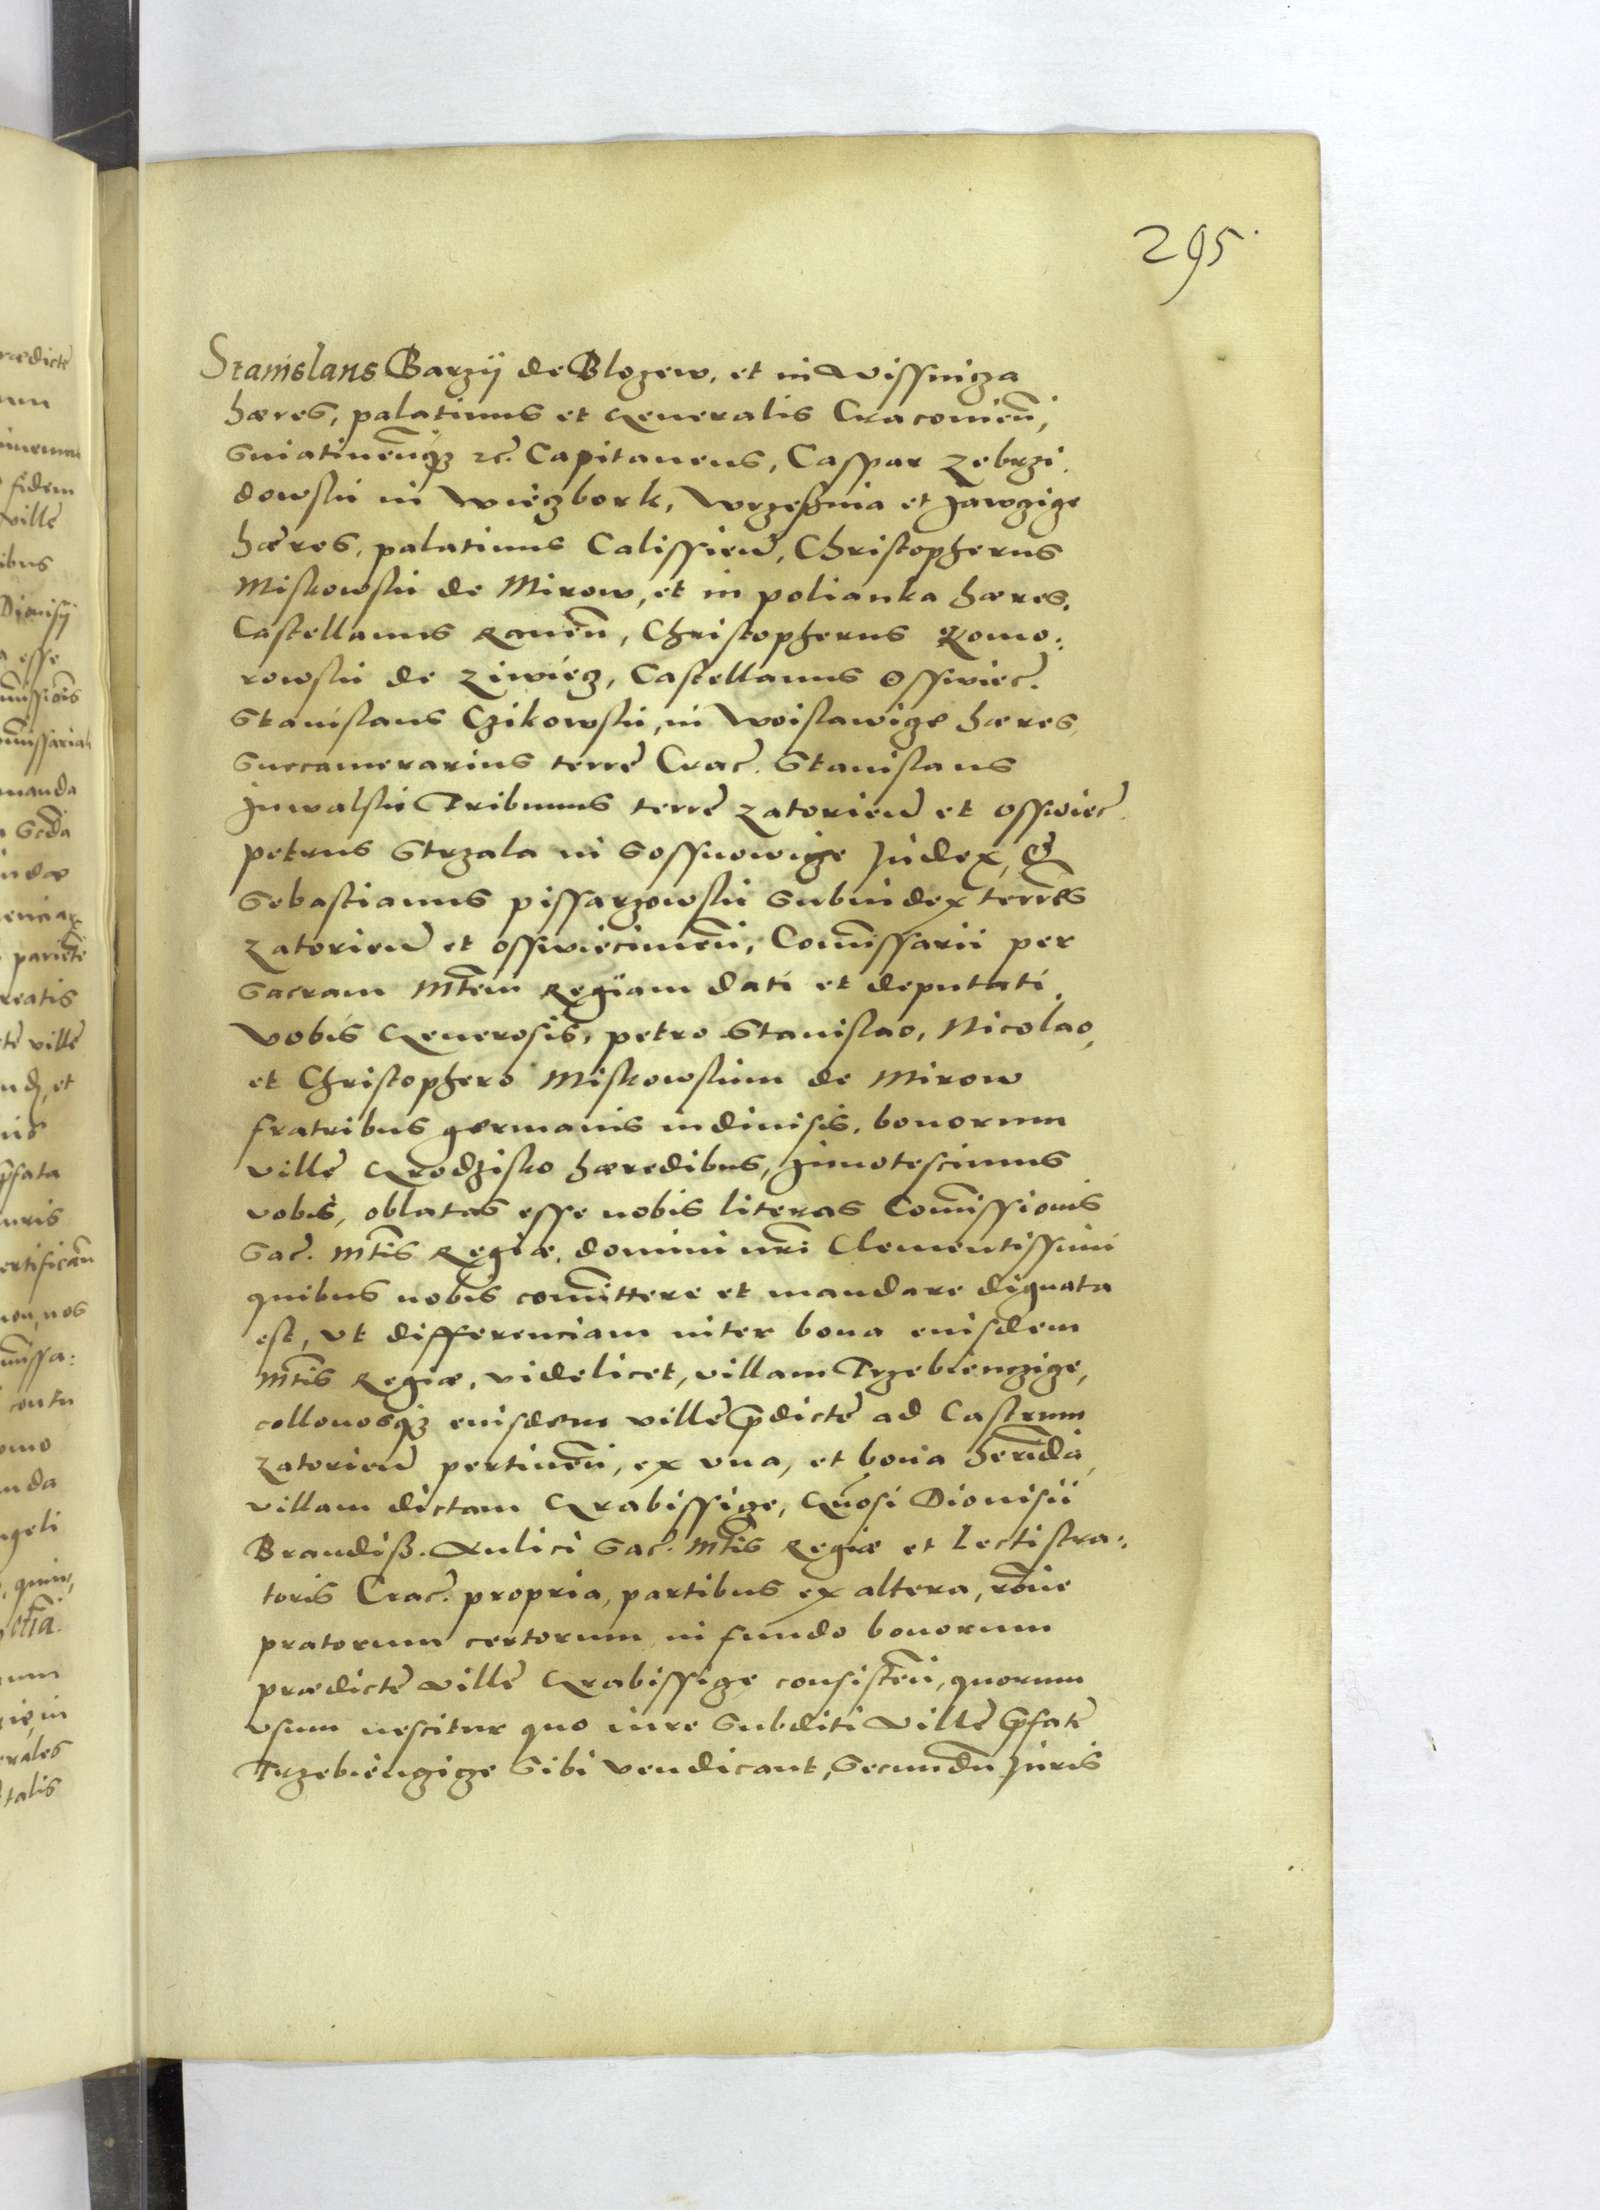 295
Stanislaus Barzÿ de Blozew, et in Wissnicza
hæres, palatinus et Generalis Cracovieñ,
Sniatineñqꝫ ꝛc̃. Capitaneus, Caspar Zebrzi
dowskii in Więczbork, Wrzessnia et Jawczicze
hæres, palatinus Calissieñ, Christopherus
Miskowskii de Mirow, et in polianka hæres,
Castellanus Raveñ, Christopherus Komo:
rowskii de Ziwiecz, Castellanus Osswieć.
Stanislaus Czikowskii, in Woislawicze hæres,
Succamerarius terrę Crac̃. Stanislaus
Jnwalskii Tribunus terrę Zatorieñ et Osswieć.
petrus Strzala in Sossnowicze Judex, &
Sebastianus pissarzowskii Subiudex terrẽs
Zatorieñ et Osswiecimeñ, Com̃issarii per
Sacram Mt̃em Regiam dati et deputati,
Vobis Generosis, petro Stanislao, Nicolao,
et Christophero Miskowskiim de Mirow
fratribus germanis indivisis, bonorum
villę Grodzisko hæredibus, Jnnotescimus
vobis, oblatas esse nobis literas Com̃issionis
Sac̃. Mt̃is Regiæ, domini nr̃i Clementissimi
quibus nobis com̃ittere et mandare dignata
est, ut differenciam inter bona eiusdem
Mt̃is Regiæ, videlicet, villam Trzebienczice,
collonosqꝫ eiusdem villę p̃dictę ad Castrum
Zatorieñ pertineñ, ex una, et bona herñda,
villam dictam Grabissicze, Gñosi Dionisii
Brandiß. Aulici Sac̃. Mt̃is Regiæ et Lectistra:
toris Crac̃. propria, partibus ex altera, rõne
pratorum certorum in fundo bonorum
prædictę villę Grabissicze consisteñ, quorum
usum nescitur quo iure Subditi Villę p̃fatę
Trzebienczicze Sibi vendicant, Secundũ Juris